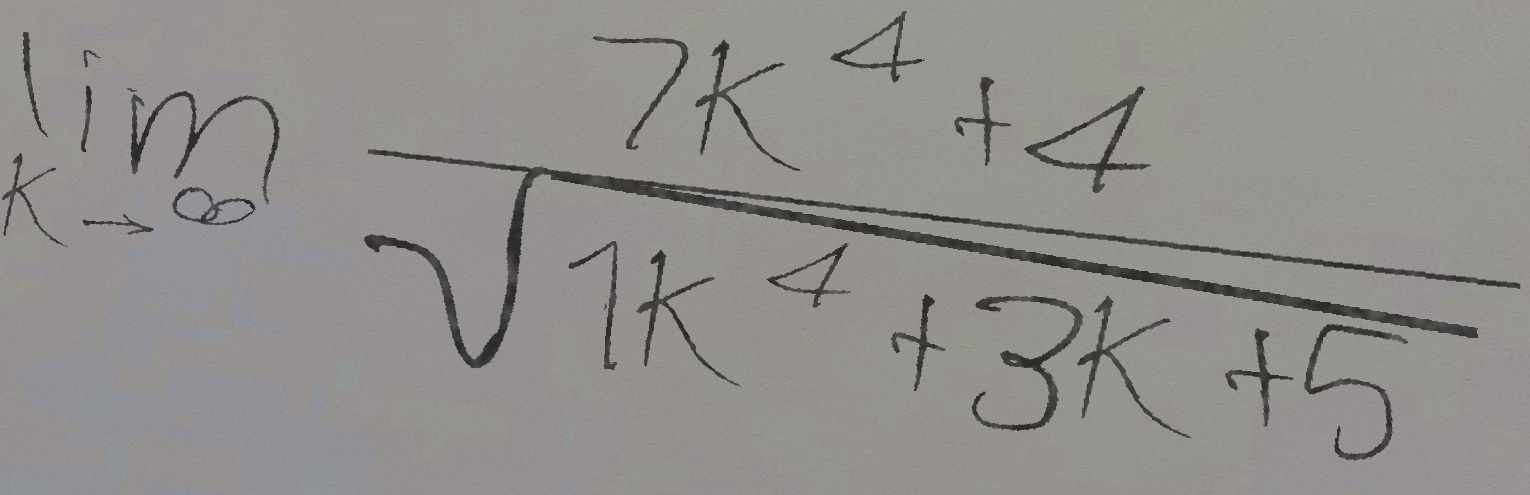 lim k→∞ (7k^4 + 4) / √(1k^4 + 3k + 5)